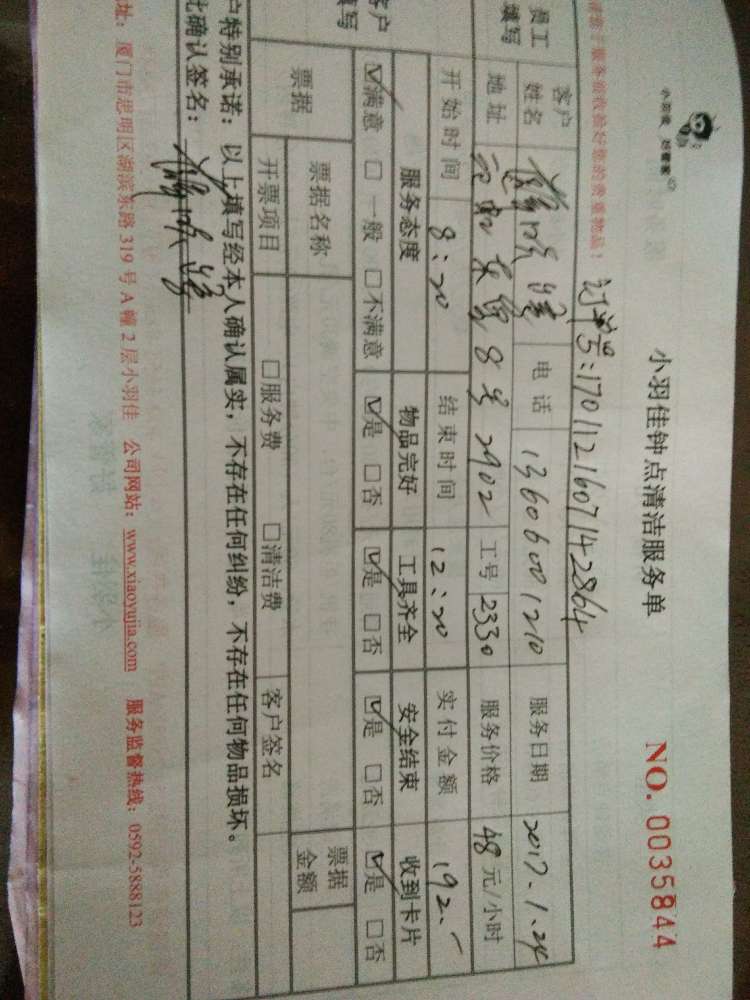 小羽佳 好管家
小羽佳钟点清洁服务单
NO. 0035844
订单号:1701121607142864
服务前收拾好您的贵重物品!
员工填写
客户姓名 电话 13606001210 服务日期 2017.1.24
地址 8号2902 工号 2330 服务价格 48元/小时
开始时间 8:20 结束时间 12:20 实付金额 192.-
客户填写
服务态度 物品完好 工具齐全 安全结束 收到卡片
☑满意 □一般 □不满意 ☑是 □否 ☑是 □否 ☑是 □否 ☑是 □否
票据
票据名称 票据金额
开票项目 □服务费 □清洁费 客户签名
户特别承诺:以上填写经本人确认属实,不存在任何纠纷,不存在任何物品损坏。
此确认签名:
址:厦门市思明区湖滨东路319号A幢2层小羽佳 公司网站:www.xiaoyujia.com 服务监督热线:0592-5888123